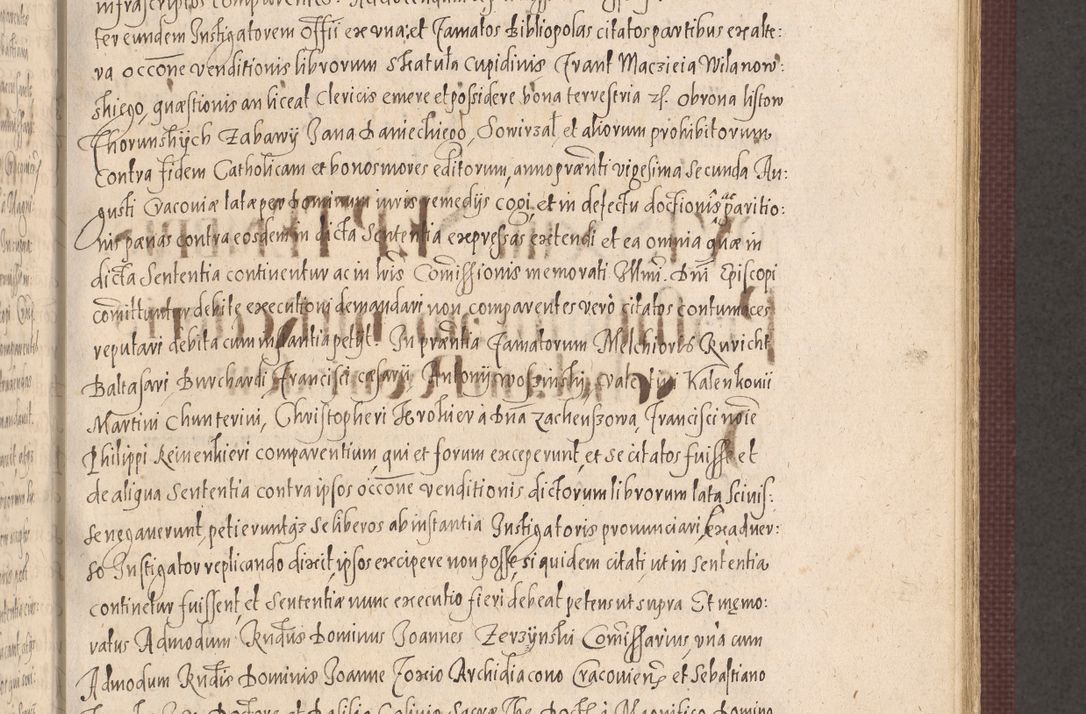 ter eundem Instigatorem Offii ex vna, et Famatos Bibliopolas citatos partibus ex alte:
ra occōne venditionis librorum Skatuła Cupidinis Frant Maczieia Wilanow:
skiego, quæstionis an liceat Clericis emere et possidere bona terrestria zł. obrona listow
Thorunskijch Zabawij Jana Daniechiego, Sowirzał, et aliorum prohibitorum,
Contra fidem Catholicam et bonos mores editorum, anno præsnti vigesima secunda Au:
gusti Cracouiæ lata per Dominum iuris remedijs cogi, et in defectu doctionis paritio:
nis pænas contra eosdem in dicta Sententia expressas extendi et ea omnia quæ in
dicta Sententia continentur ac in lris Comissionis memorati Illmi. Dni Episcopi
comittuntur debite executioni demandari non comparentes verò citatos contumaces
reputari debita cum instantia petijt. In præntia Famatorum Melchioris Ruricht,
Baltasari Burchardi, Francisci cæsarij, Antonij woszinski, valentini Kalenkouii
Martini Chunterini, Christopheri Krohier à Dna Zachenszowa, Francisci noie
Philippi Reinenkieri comparentium, qui et forum exceperunt, et se citatos fuisse et
de aliqua Sententia contra ipsos occōne venditionis dictorum librorum lata scinis:
se negauerunt, petieruntq3 se liberos ab instantia Instigatoris pronunciari. Ex aduer:
so Instigator replicando dixit, ipsos excipere non posse, si quidem citati ut in sententia
continetur fuissent, et Sententiæ nunc executio fieri debeat petens ut supra Et memo:
ratus Admodum Rndus Dominus Joannes Zerzijnski Comissarius, vna cum
Admodum Rndis Dominis Joanne Foxio Archidiacono Cracouien, et Sebastiano